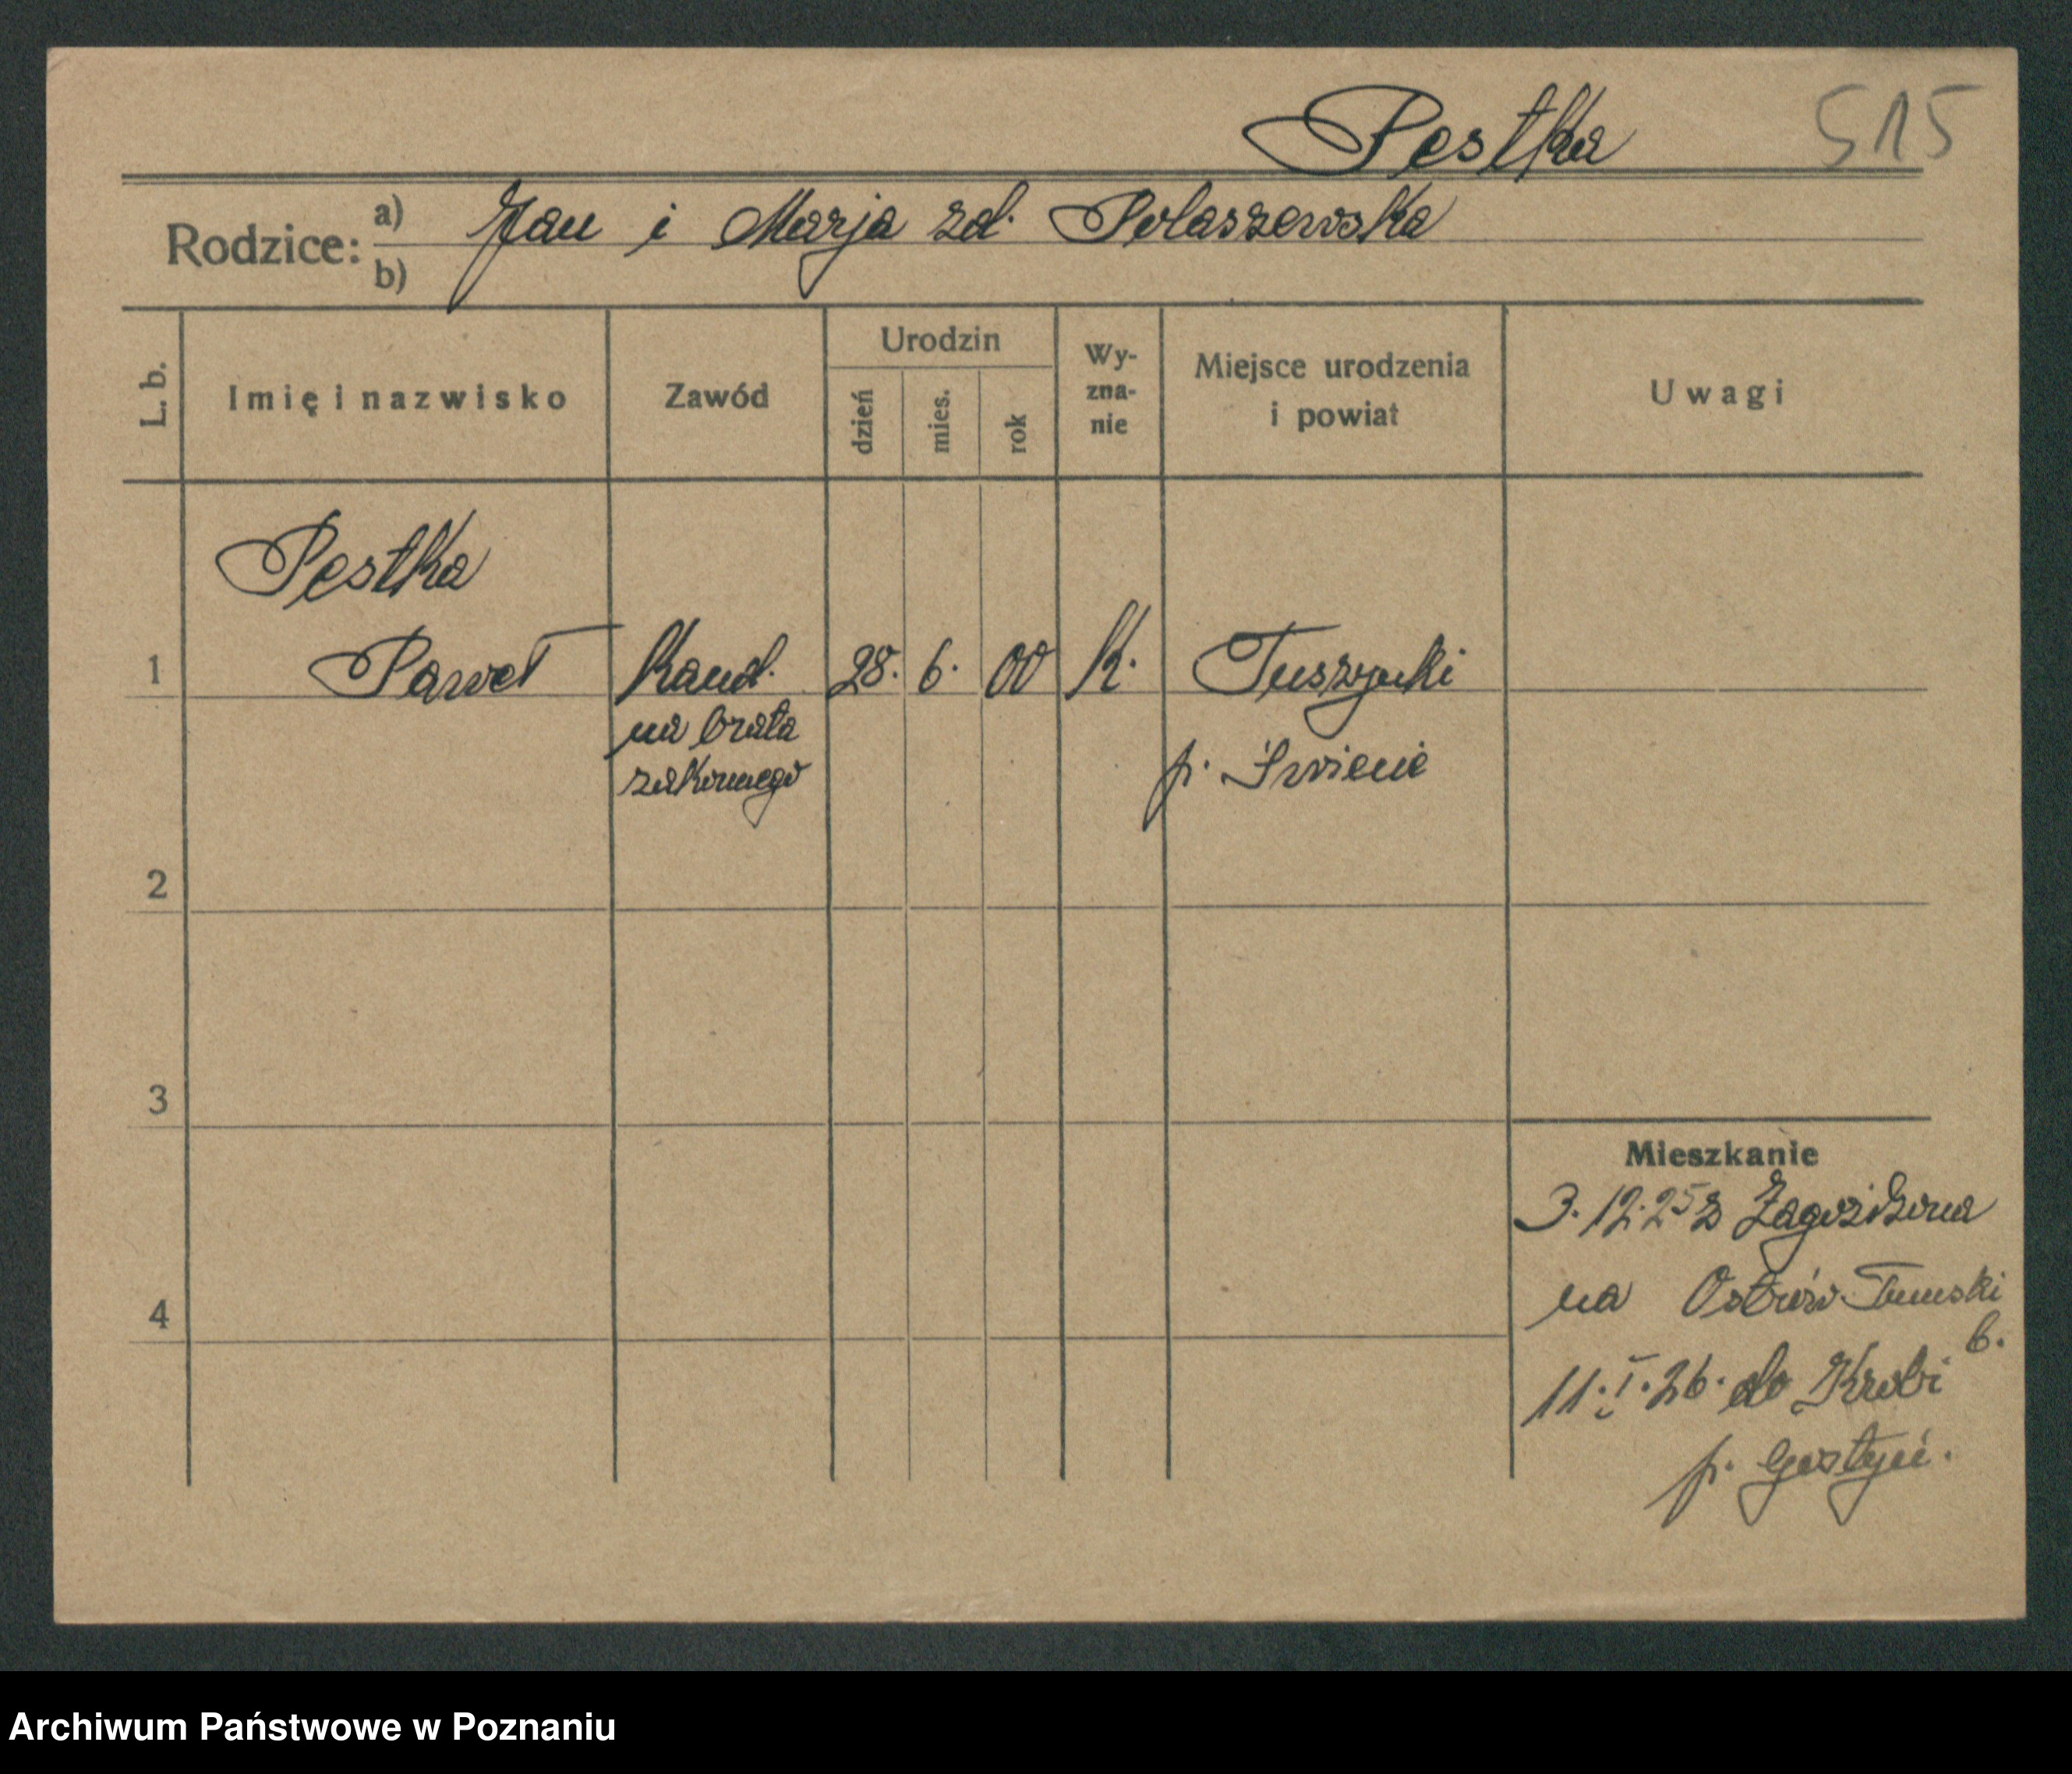 Pestka 515
Rodzice: a) Jan i Marja zd. Polaszewska
b)
L. b. Imię i nazwisko Zawód Urodzin dzień mies. rok Wy-zna-nie Miejsce urodzenia i powiat Uwagi
Pestka
1 Paweł Kand. 28. 6. 00 K. Tuszynki
na brata p. Świecie
zakonnego
2
3
Mieszkanie
3.12.25 z Zagoździona
na Ostrów Tumski
4 6.
11.I.26. do Krobi
p. Gostyń.
Archiwum Państwowe w Poznaniu